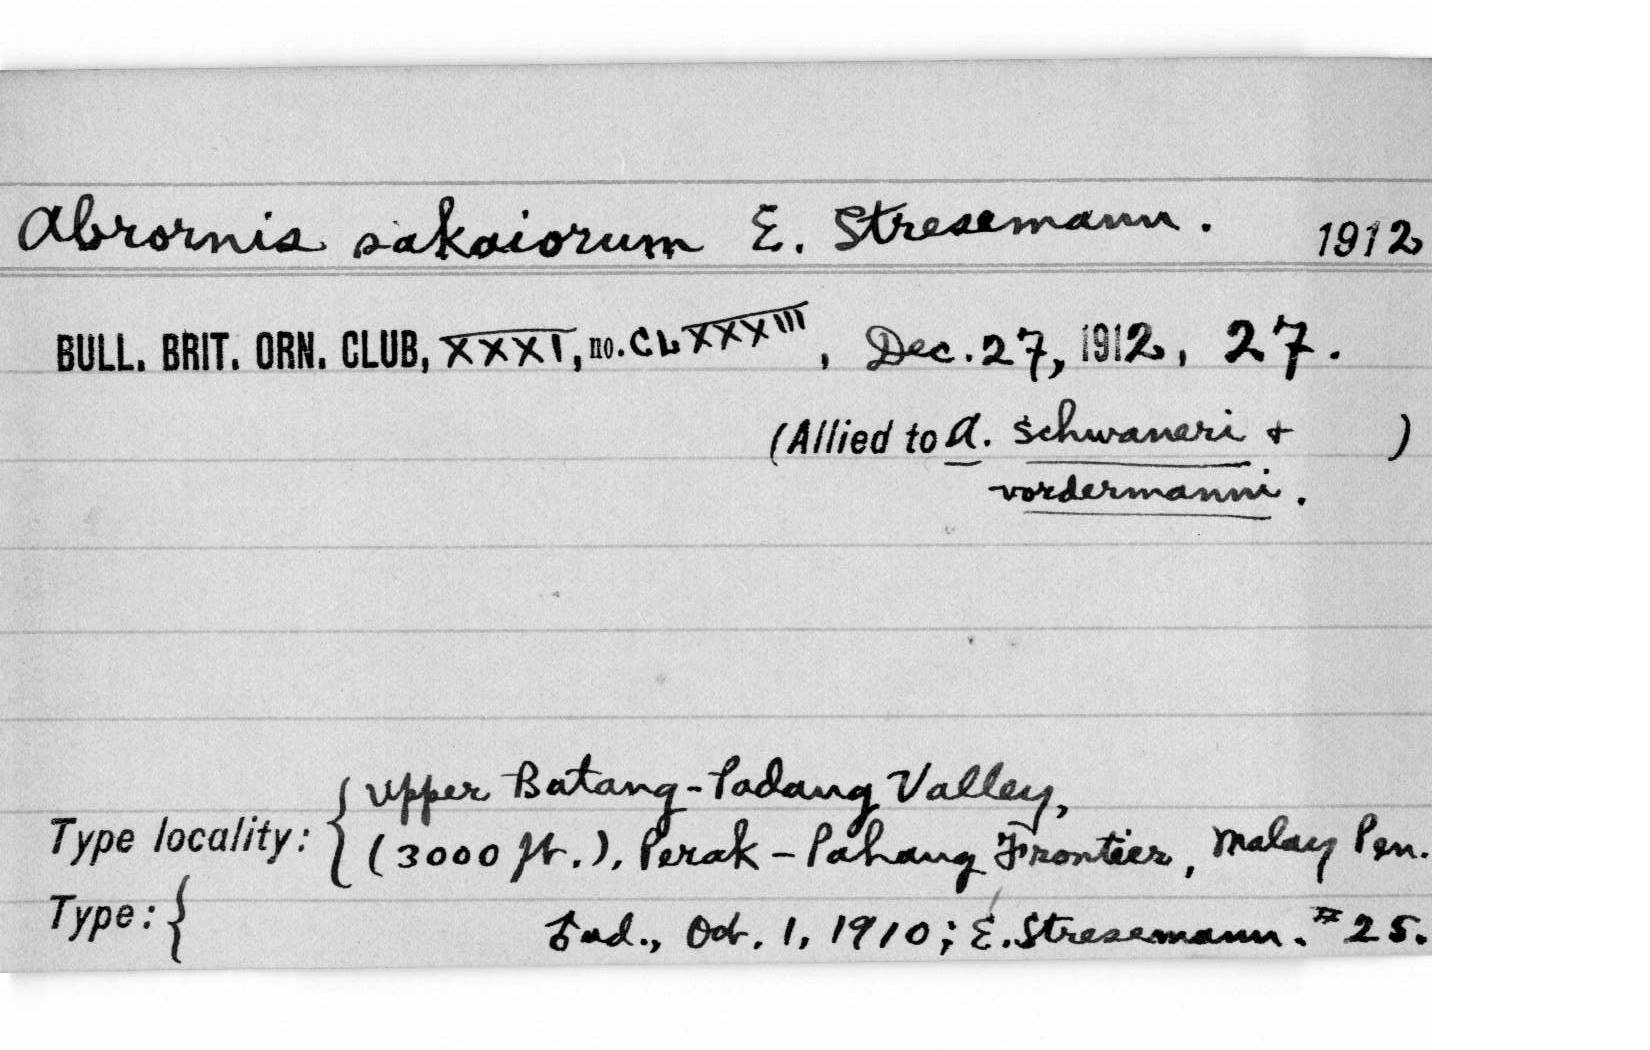 Abrornis sakaiorum E. Stresemann. 1912
BULL. BRIT. ORN. CLUB, XXXI, no. CLXXXIII, Dec. 27, 1912, 27.
(Allied to A. schwaneri + )
vordermanni.
Upper Batang-Padang Valley,
Type locality: { (3000 ft.), Perak-Pahang Frontier, Malay Pen.
Type: { ♂ ad., Oct. 1, 1910; E. Stresemann. # 25.